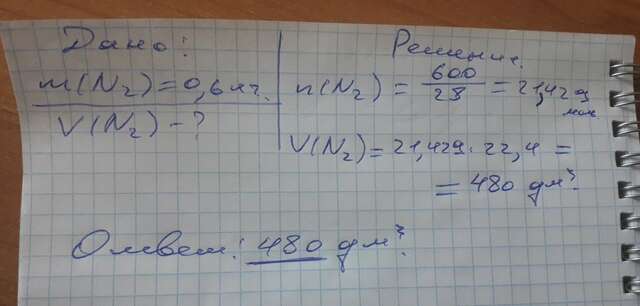 Дано:
m(N₂) = 0,6 кг.
V(N₂) - ?
Решение.
n(N₂) = 600/28 = 21,429 моль
V(N₂) = 21,429 · 22,4 =
= 480 дм³.
Ответ: 480 дм³.